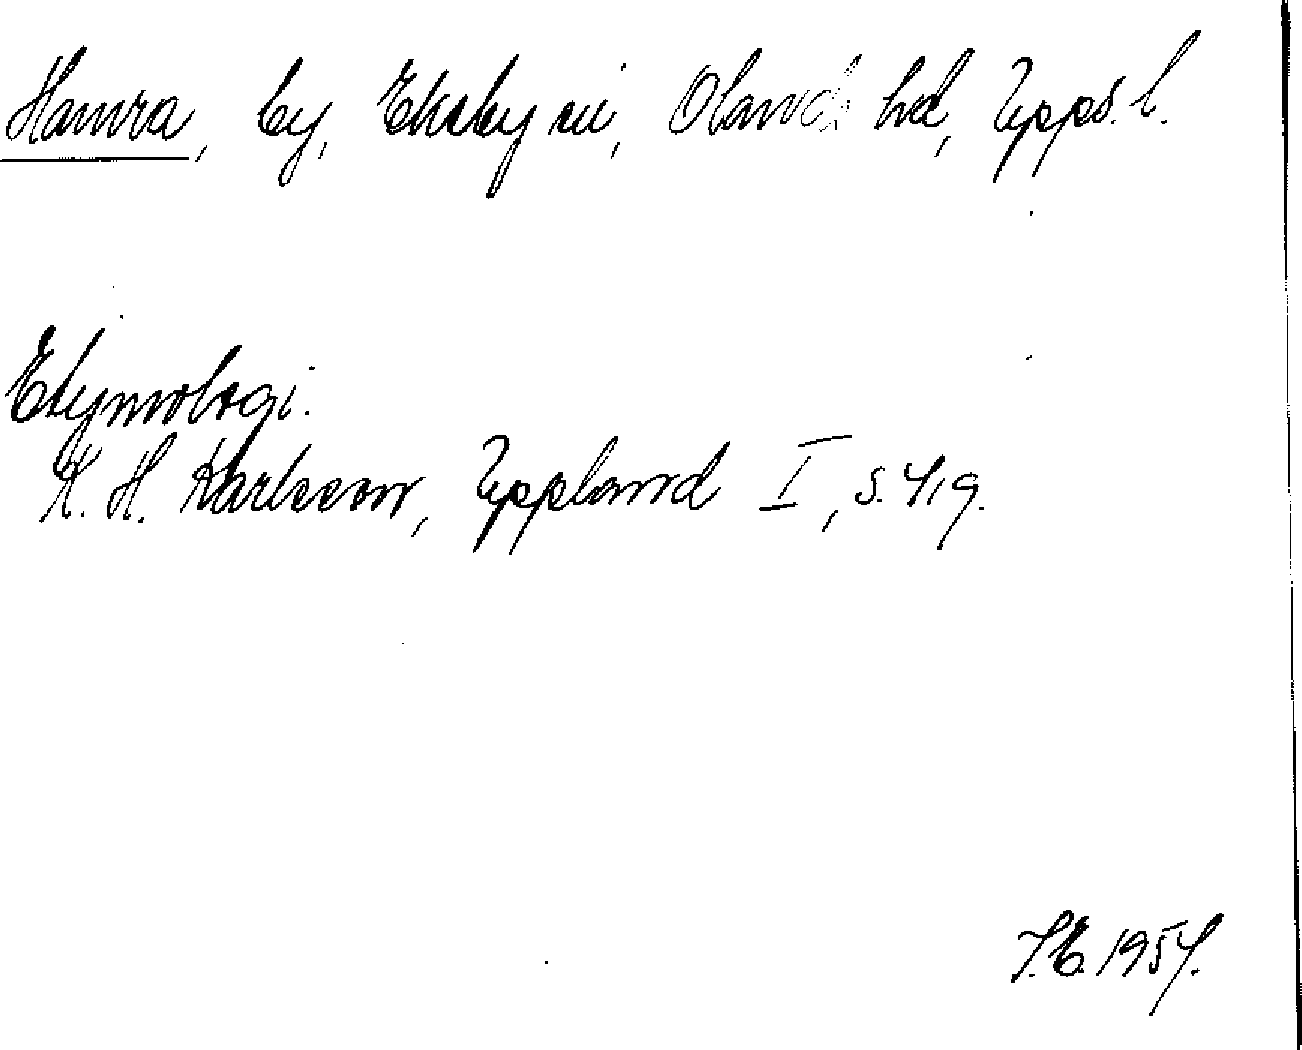 Hamra, by, Ekeby sn, Olands hd, Upps. l.
Etymologi.
K. H. Karlsson, Uppland I, s. 419.
1954.